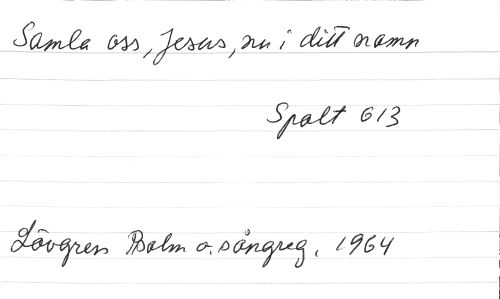 Samla oss, Jesus, nu i ditt namn
Spalt 613
Lövgren Psalm o. sångreg. 1964